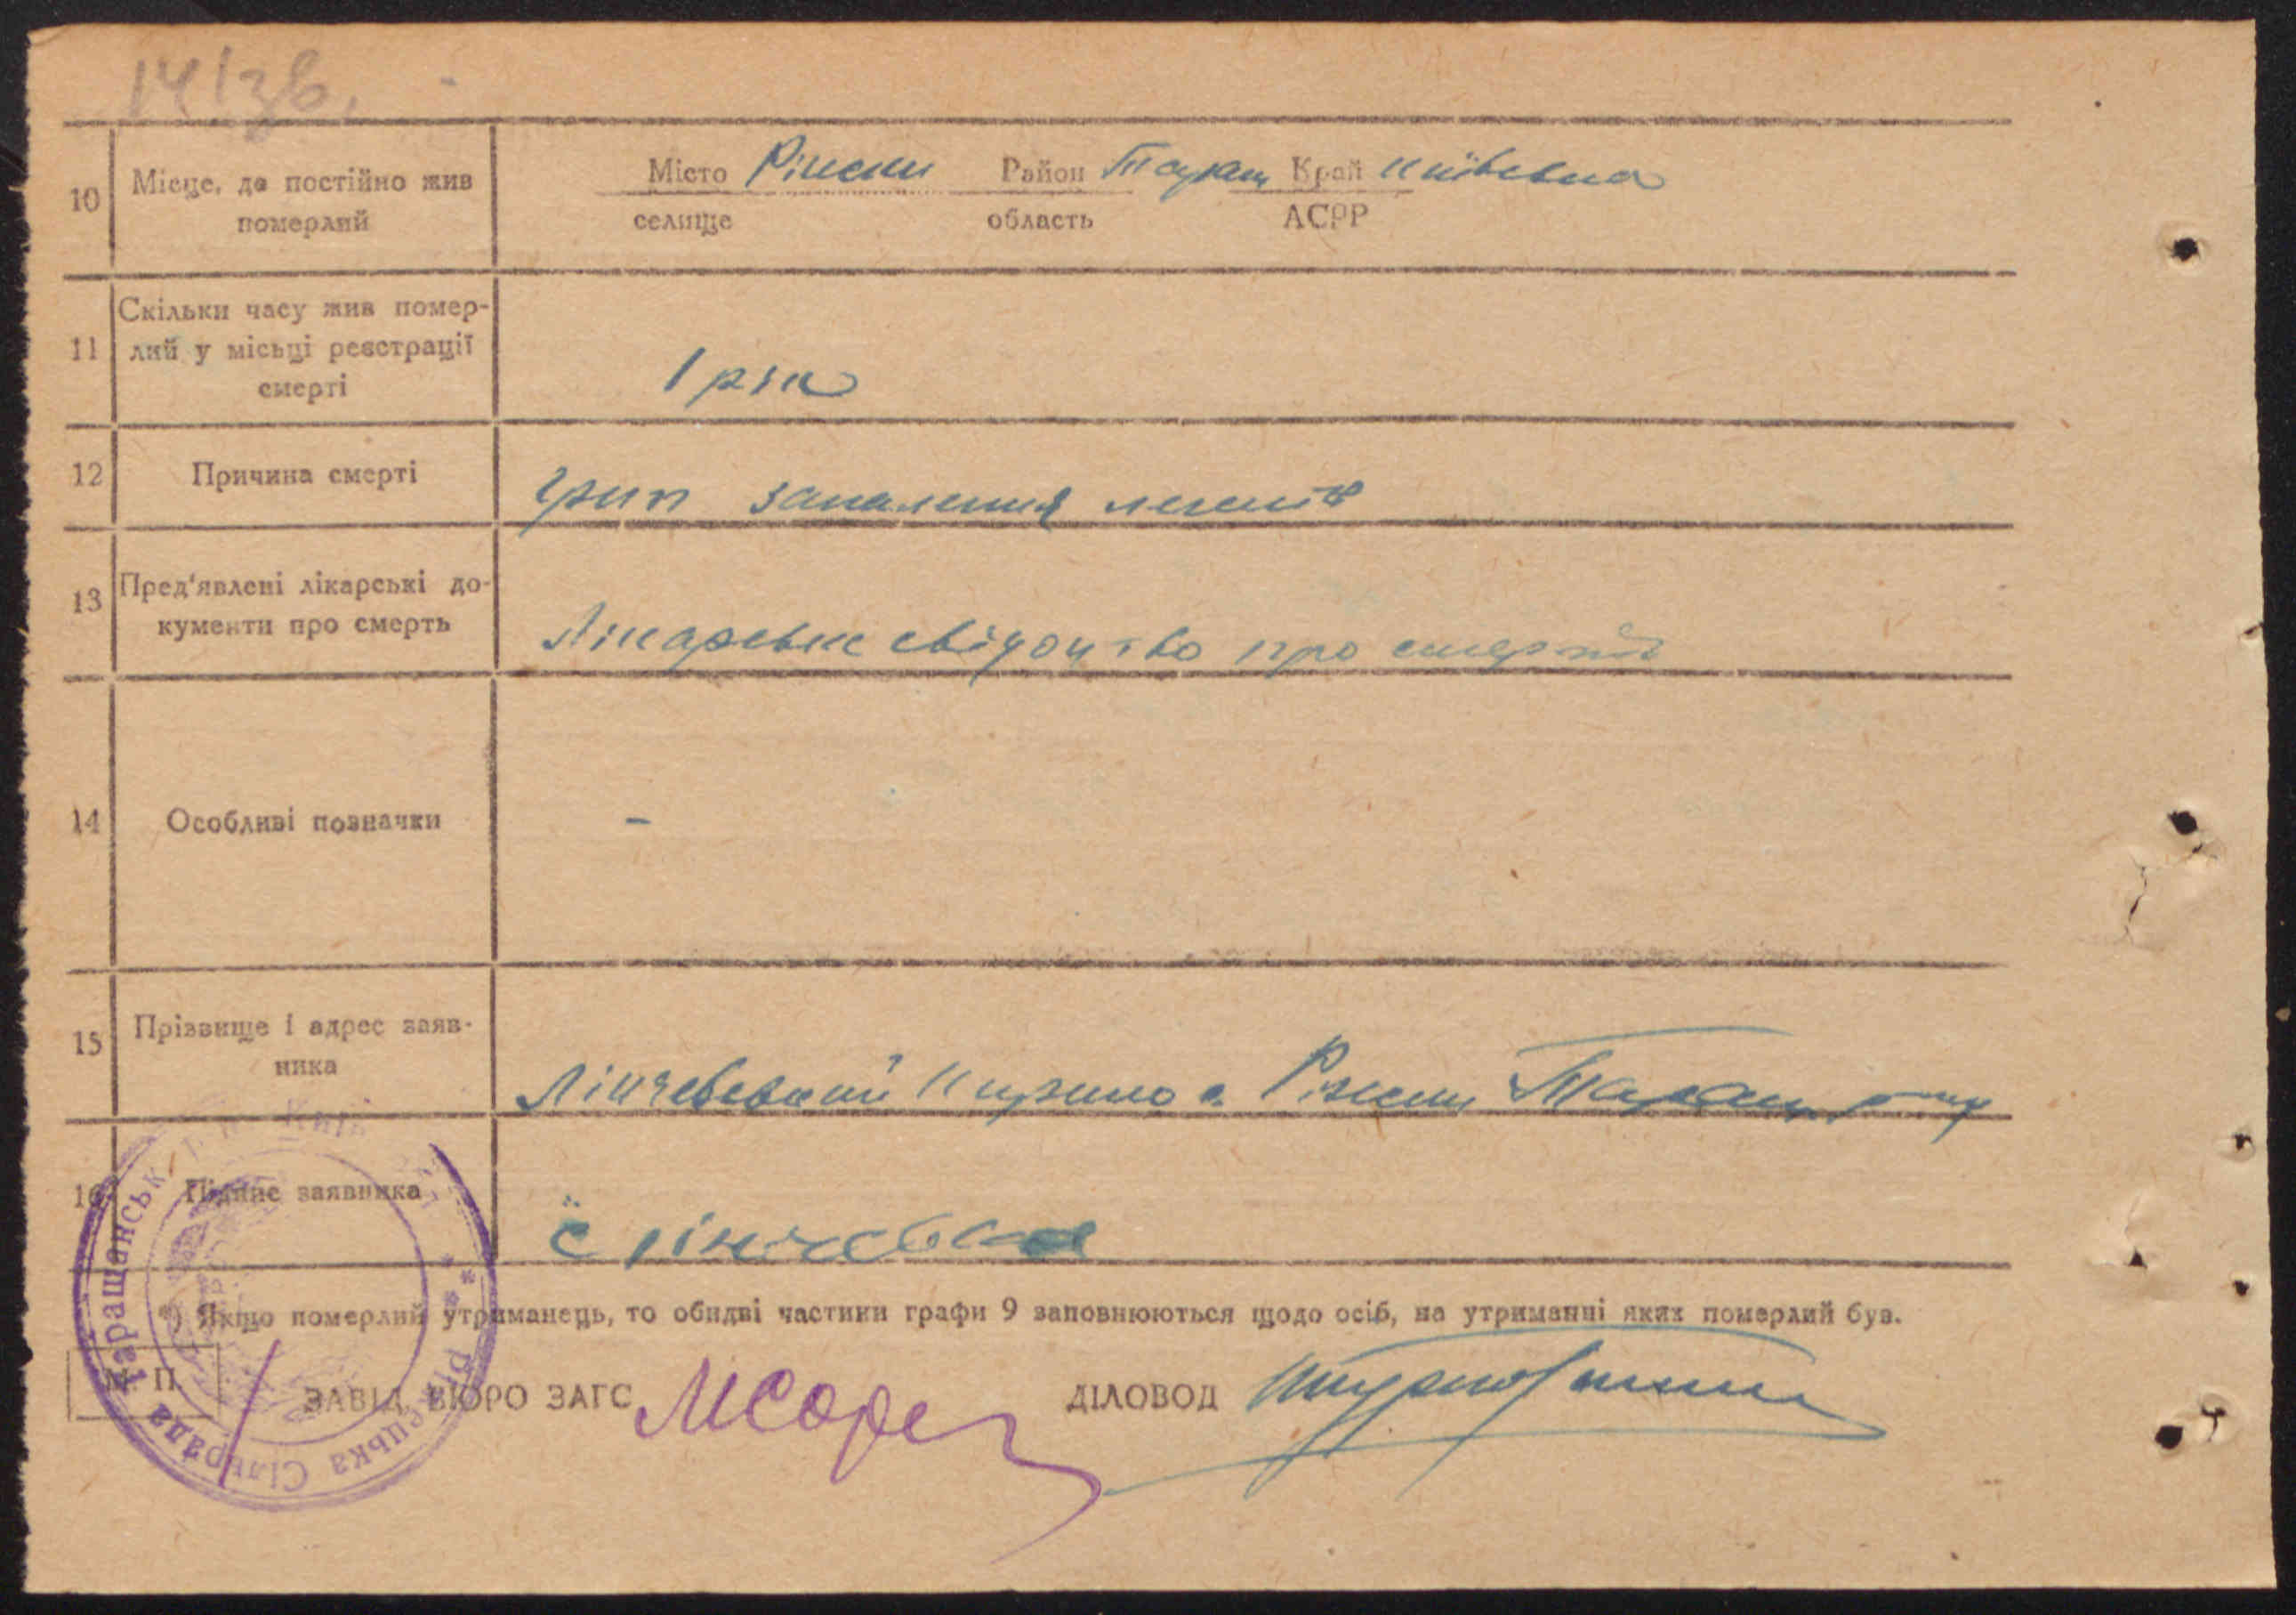 14 зв.
10 Місце, де постійно жив померлий
Місто Ріжки Район Таращ Край Київська
селище область АСРР
11 Скільки часу жив помер-
лий у місьці реєстрації
смерті
1 рік
12 Причина смерті
грип запалення легенів
13 Пред'явлені лікарські до-
кументи про смерть
Лікарське свідоцтво про смерть
14 Особливі позначки
-
15 Прізвище і адрес заяв-
ника
Лінчевський с. Ріжки Таращ
16 Підпис заявника
*) Якщо померлий утриманець, то обидві частини графи 9 заповнюються щодо осіб, на утриманні яких померлий був.
М. П.
ЗАВІД. БЮРО ЗАГС
ДІЛОВОД
Таращанськ
Сільрада